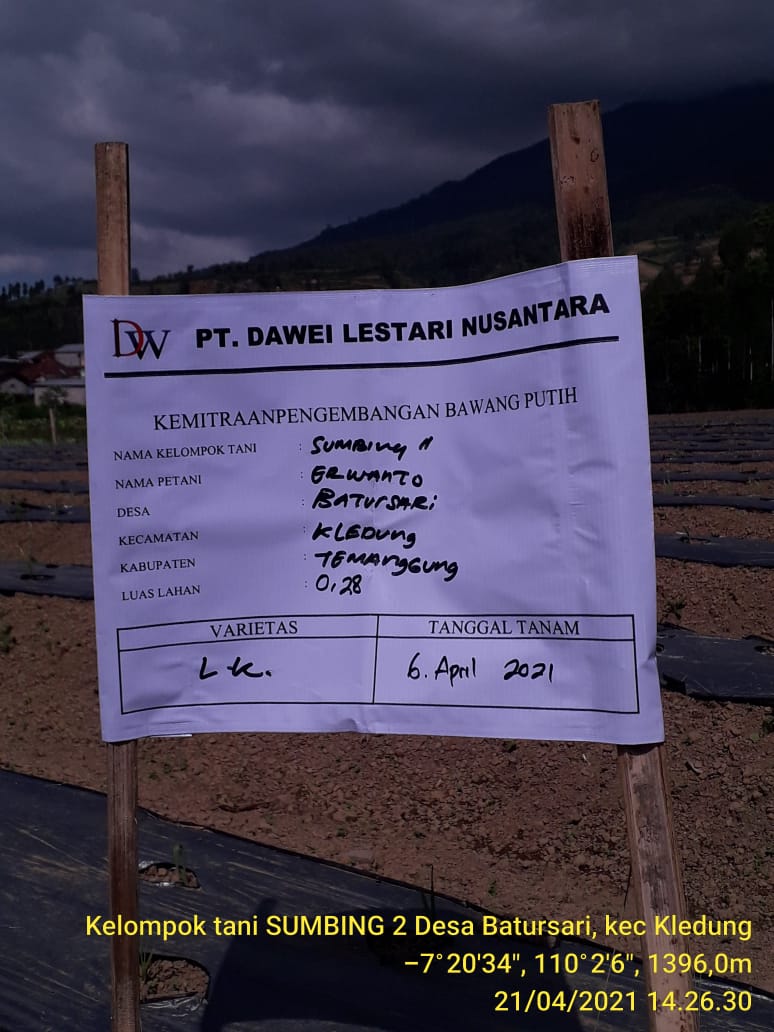 DW PT. DAWEI LESTARI NUSANTARA
KEMITRAANPENGEMBANGAN BAWANG PUTIH
NAMA KELOMPOK TANI : SUMBING II
NAMA PETANI : ERWANTO
DESA : BATURSARI
KECAMATAN : KLEDUNG
KABUPATEN : TEMANGGUNG
LUAS LAHAN : 0,28
VARIETAS TANGGAL TANAM
L K. 6. April 2021
Kelompok tani SUMBING 2 Desa Batursari, kec Kledung
−7°20'34", 110°2'6", 1396,0m
21/04/2021 14.26.30